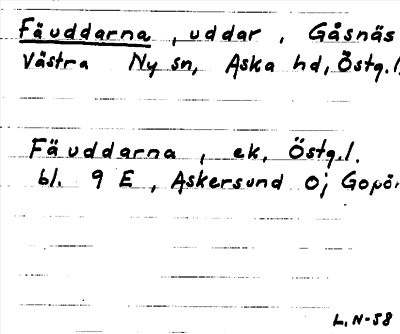 Fäuddarna, uddar, Gåsnäs
Västra Ny sn, Aska hd, Östg.l.
Fäuddarna, ek, Östg.l.
bl. 9 E, Askersund Oj
L. N-58